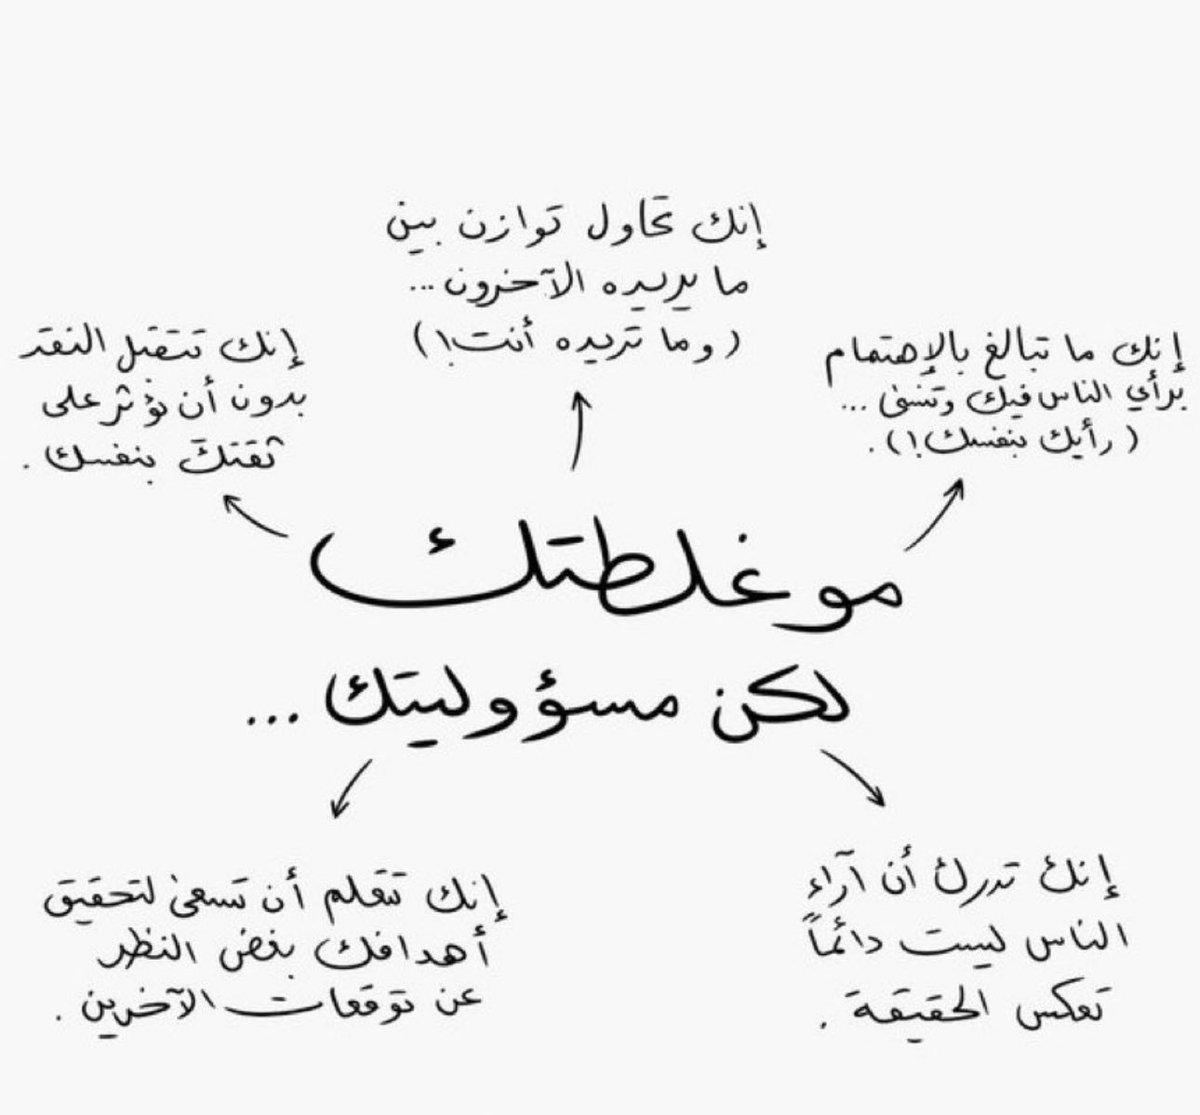 إنك تحاول توازن بين
ما يريده الآخرون...
(وما تريده أنت!)
إنك ما تبالغ بالإهتمام
برأي الناس فيك وتنسى...
(رأيك بنفسك!).
إنك تتقبل النقد
بدون أن يؤثر على
ثقتك بنفسك.
مو غلطتك
لكن مسؤوليتك...
إنك تدرك أن آراء
الناس ليست دائماً
تعكس الحقيقة.
إنك تتعلم أن تسعى لتحقيق
أهدافك بغض النظر
عن توقعات الآخرين.